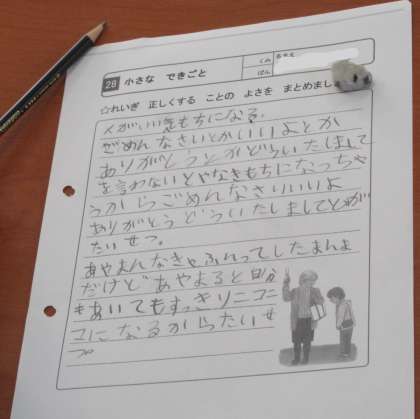 28 小さな できごと
くみ
ばん
なまえ
☆れいぎ 正しくする ことの よさを まとめまし
人がいい気もちになる。
ごめんなさいとかいいよとか
ありがとうとかどういたしまして
を言わないとやなきもちになっちゃ
うからごめんなさいいいよ
ありがとうどういたしましてとかが
たいせつ。
あやまんなきゃふんってしたまんま
だけどあやまると自分
もあいてもすっきりニコニ
コになるからたいせ
つ